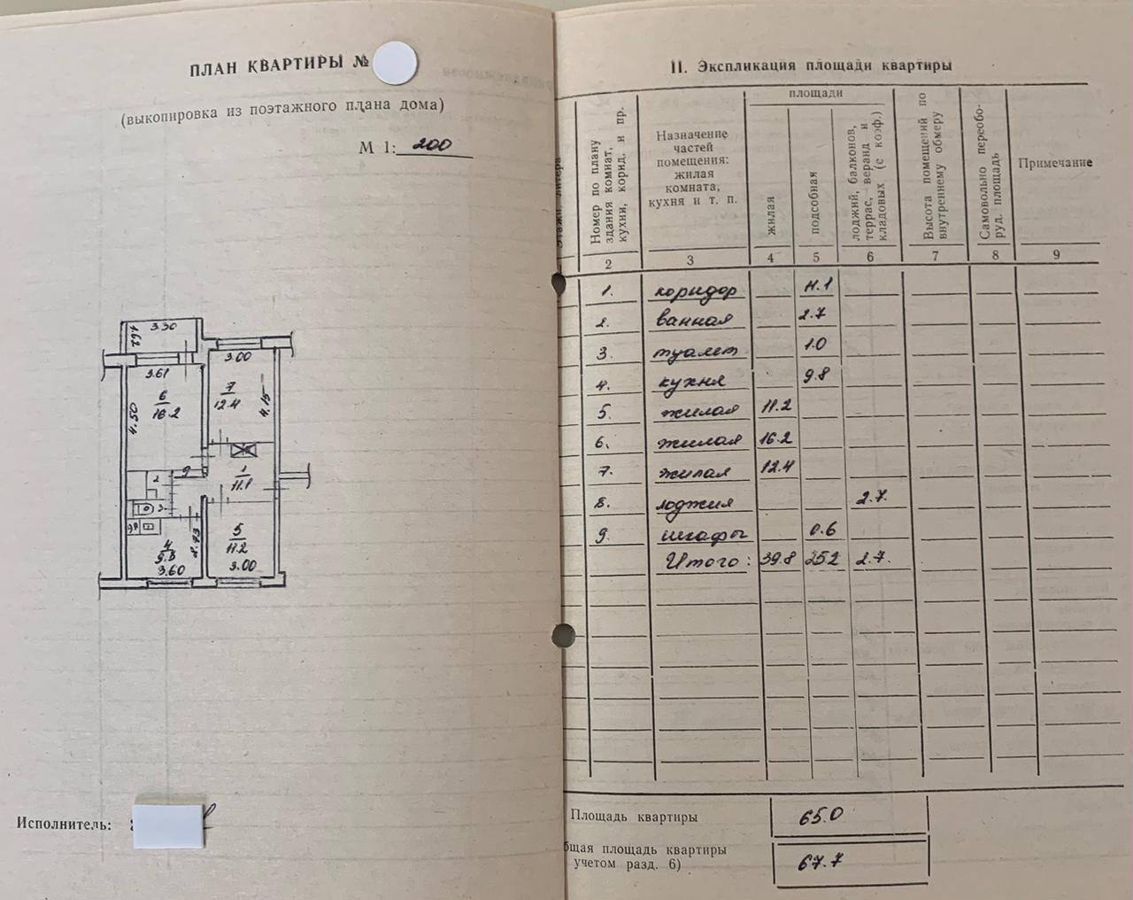 ПЛАН КВАРТИРЫ №
(выкопировка из поэтажного плана дома)
М 1: 200
3.30
1.62
3.61
3.00
6
16.2
4.50
7
12.4
4.15
9
2
1
11.1
3
4
9.8
3.60
2.73
5
11.2
3.00
Исполнитель:
II. Экспликация площади квартиры
Этажи, литера
Номер по плану здания комнат, кухни, корид, и пр.
Назначение частей помещения: жилая комната, кухня и т. п.
площади
жилая
подсобная
лоджий, балконов, террас, веранд и кладовых (с коэф.)
Высота помещений по внутреннему обмеру
Самовольно переобо- руд. площадь
Примечание
2 3 4 5 6 7 8 9
1. коридор 11.1
2. ванная 2.7
3. туалет 1.0
4. кухня 9.8
5. жилая 11.2
6. жилая 16.2
7. жилая 12.4
8. лоджия 2.7
9. шкафы 0.6
Итого: 39.8 25.2 2.7.
Площадь квартиры 65.0
бщая площадь квартиры
учетом разд. 6) 67.7